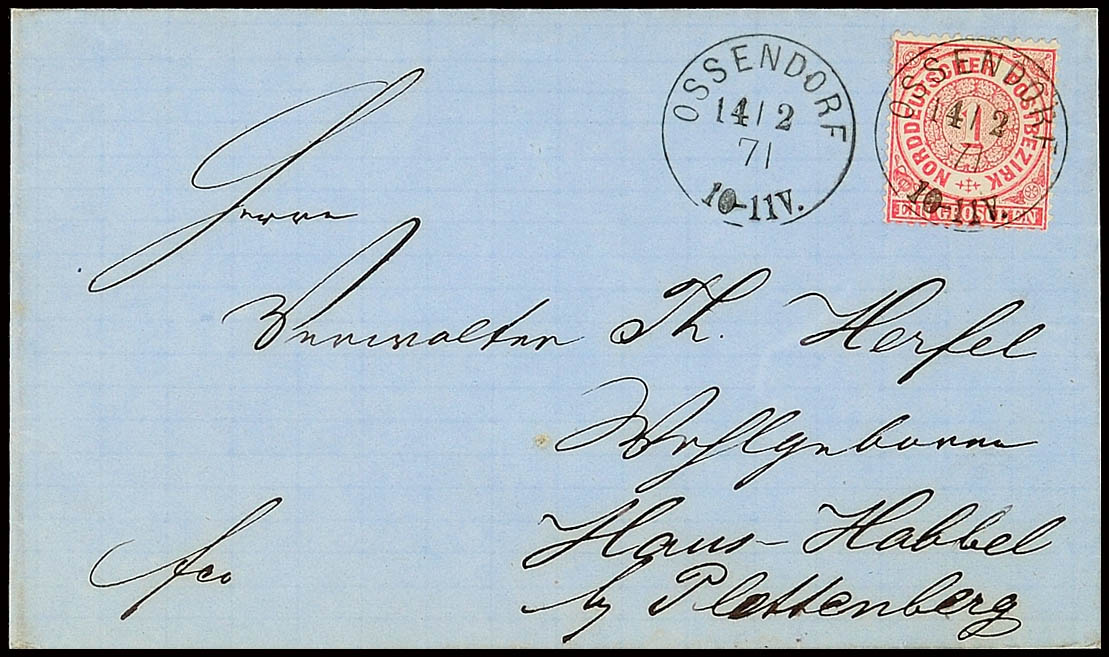 OSSENDORF
14/2
71
10-11V.
OSSENDORF
14/2
71
10-11V.
NORDDEUTSCHER POSTBEZIRK
1
EIN GROSCHEN
Herrn
Verwalter Th. Herfel
Wohlgeboren
Haus-Habbel
by Plettenberg
fco